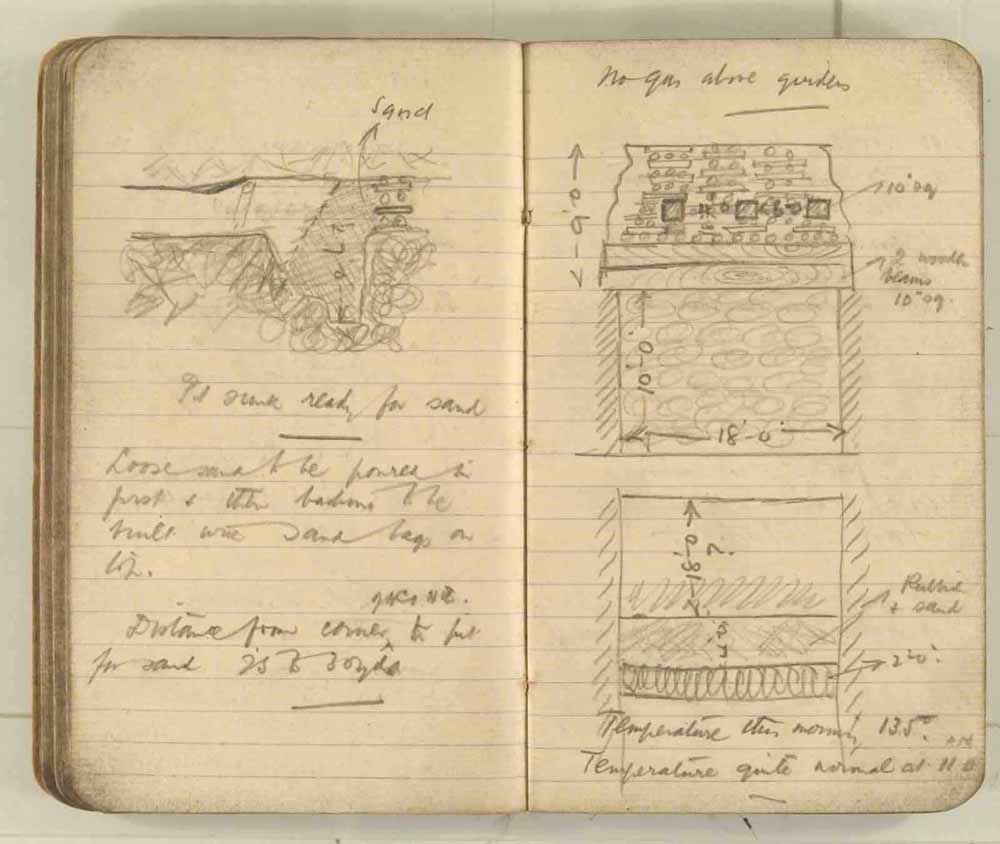 Sand
Pit sunk ready for sand
Loose sand to be poured in
first & then to be
built with sand bags on
top.
Distance from corner to pit
for sand 25 to 30 yds
No gas above girders
6'-0"
10" sq
2 wooden
beams
10" sq.
10'-0"
18'-0"
?
Rubble
+ sand
2'-0"
Temperature this morning 135°.
Temperature quite normal at 11.0